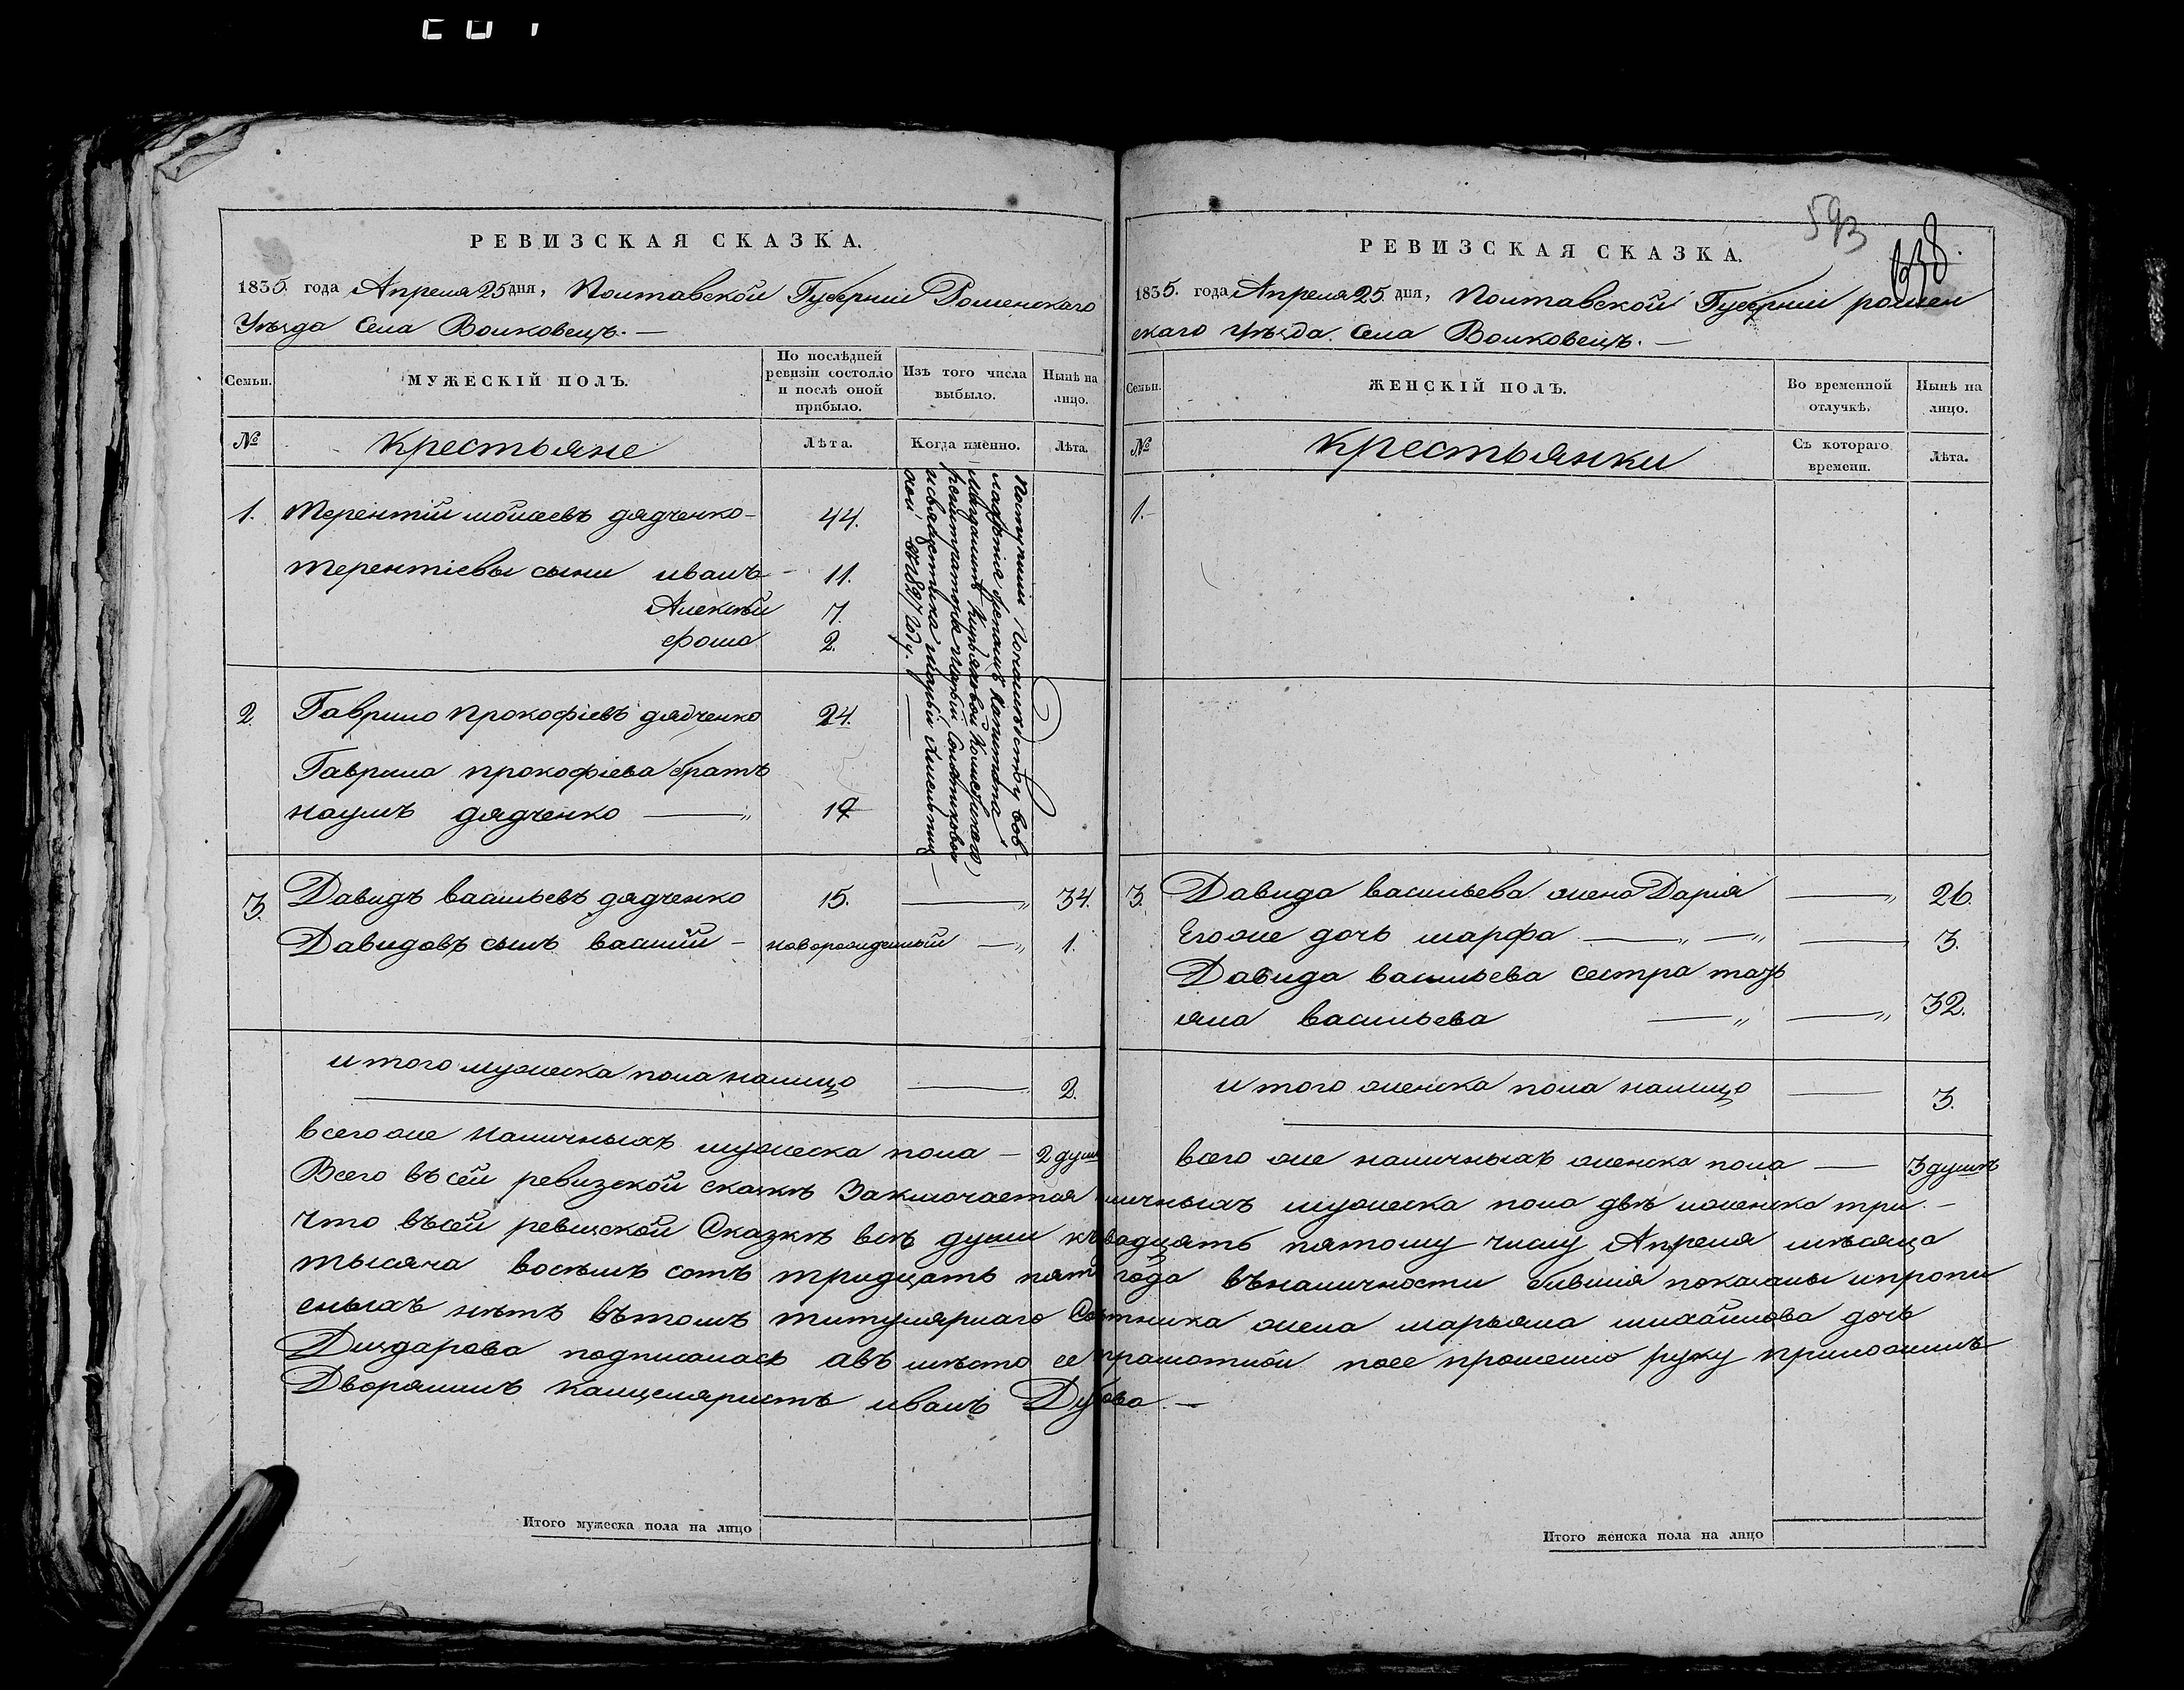 РЕВИЗСКАЯ СКАЗКА.
1835. года Апреля 25 дня, Полтавской Губерніи Роменскаго
Уѣзда Села Волковецъ. —
Семьи.
МУЖЕСКІЙ ПОЛЪ.
По послѣдней
ревизіи состояло
и послѣ оной
прибыло.
Изъ того числа
выбыло.
Нынѣ на
лицо.
№
крестьяне
Лѣта.
Когда именно.
Лѣта.
1. Терентій мойсеевъ дядченко — 44.
терентіевы сыни иванъ — 11.
Алексѣй 7.
фома 2.
2. Гаврило прокофіевъ дядченко 24.
Гаврила прокофіева братъ
наумъ дядченко — 19
Поступили
въ 1827 году. —
3. Давидъ васильевъ дядченко 15. — 34.
Давидовъ сынъ василій — новорожденный — 1.
итого мужеска пола налицо — 2.
всего же наличныхъ мужеска пола — 2 души
РЕВИЗСКАЯ СКАЗКА.
593
1835. года Апреля 25. дня, Полтавской Губерніи ромен
скаго уѣзда. Села Волковецъ. —
Семьи.
ЖЕНСКІЙ ПОЛЪ.
Во временной
отлучкѣ.
Нынѣ на
лицо.
№
крестьянки
Съ котораго
времени.
Лѣта.
1. —
3. Давида васильева жена Дарія — 26.
Его же дочь марфа — 3.
Давида васильева сестра тать
яна васильева — 32.
итого женска пола налицо — 3.
всего же наличныхъ женска пола — 3 душъ
Всего въ сей ревизской сказкѣ заключается личныхъ мужеска пола двѣ и женска три. —
Что въ сей ревизской Сказкѣ всѣ души къ вадцять пятому числу Апреля мѣсяца
тысяча восемъ сотъ тридцать пят года въ наличности бившія показаны и пропи
сныхъ нѣтъ въ томъ титулярнаго Совѣтника жена марьяна михайлова дочь
Диздарова подписалась а въ мѣсто ее грамотной по ее прошенію руку приложилъ
Дворянинъ канцеляристъ иванъ —
Итого мужеска пола на лицо
Итого женска пола на лицо